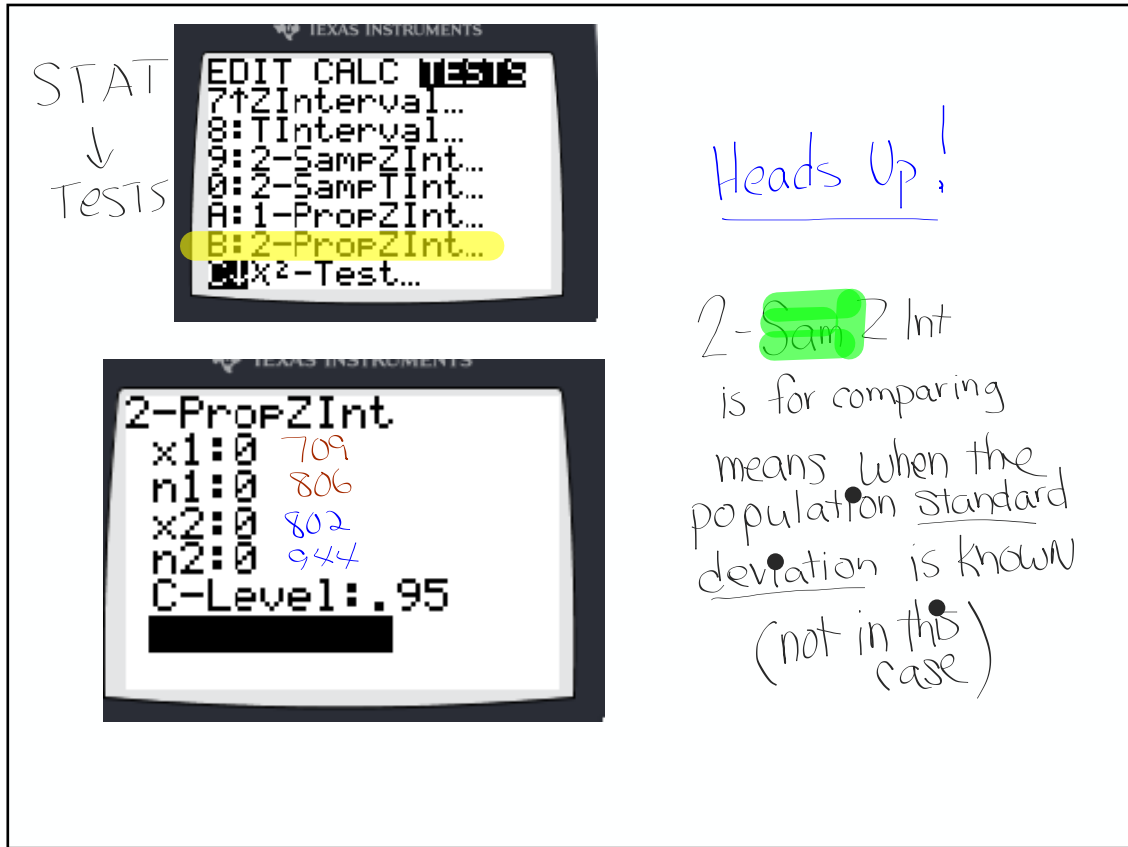 TEXAS INSTRUMENTS
STAT
↓
TESTS
EDIT CALC TESTS
7↑ZInterval…
8:TInterval…
9:2-SampZInt…
0:2-SampTInt…
A:1-PropZInt…
B:2-PropZInt…
C↓X²-Test…
TEXAS INSTRUMENTS
2-PropZInt
x1:0 709
n1:0 806
x2:0 802
n2:0 944
C-Level:.95
Heads Up!
2-Sam Z Int
is for comparing
means when the
population standard
deviation is known
(not in this
case)